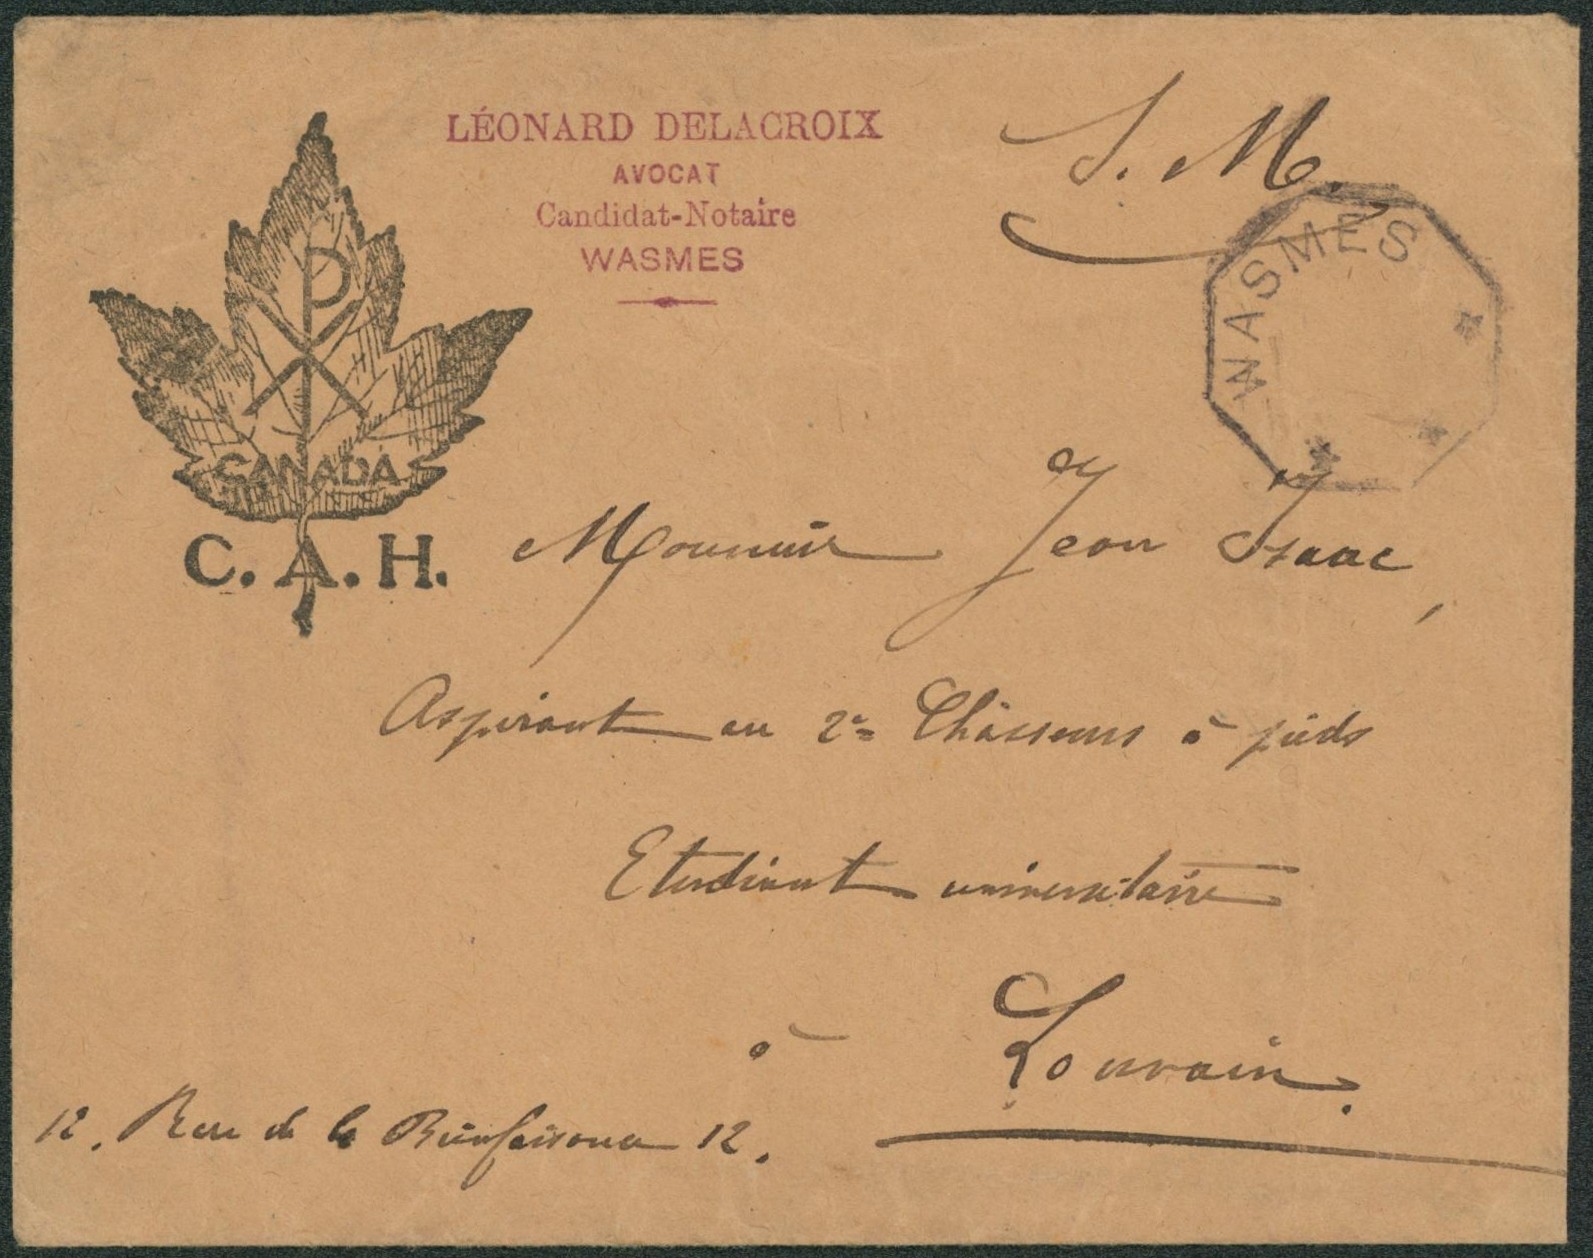 LÉONARD DELACROIX
AVOCAT
Candidat-Notaire
WASMES
S. M.
WASMES
CANADA
C. A. H.
Monsieur Jean Isaac,
Aspirant au 2e Chasseurs à pieds
Etudiant universitaire
à Louvain.
12. Rue de la Bienfaisance 12.